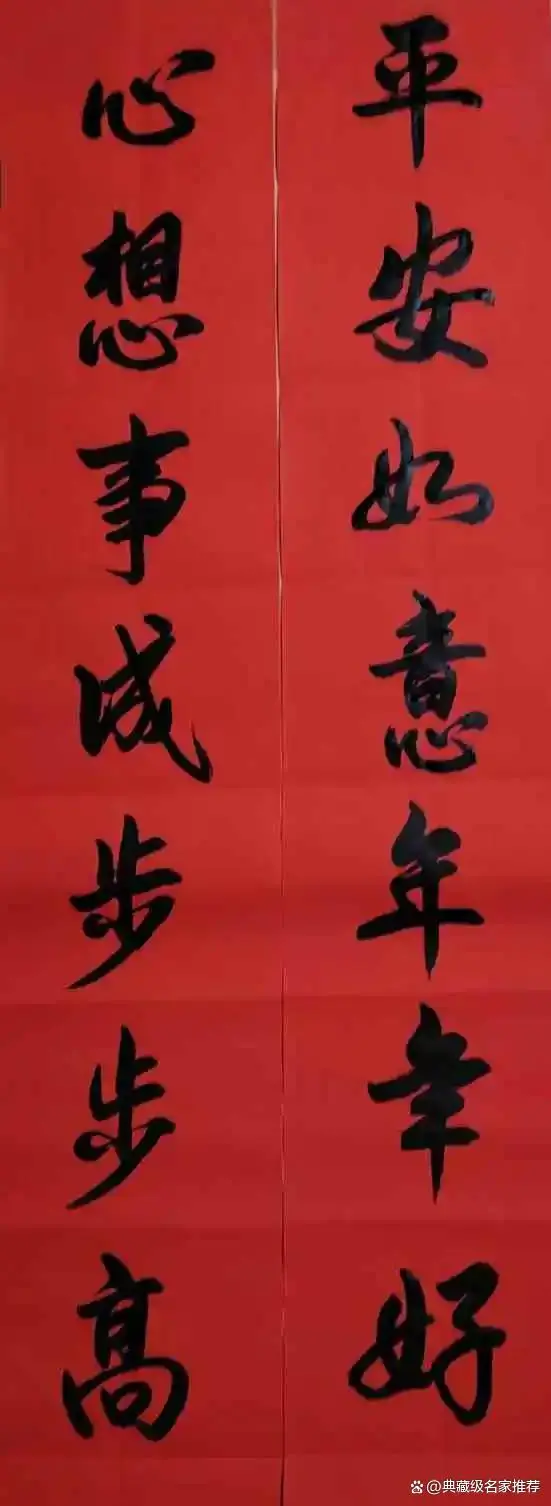 平安如意年年好
心想事成步步高
@典藏级名家推荐